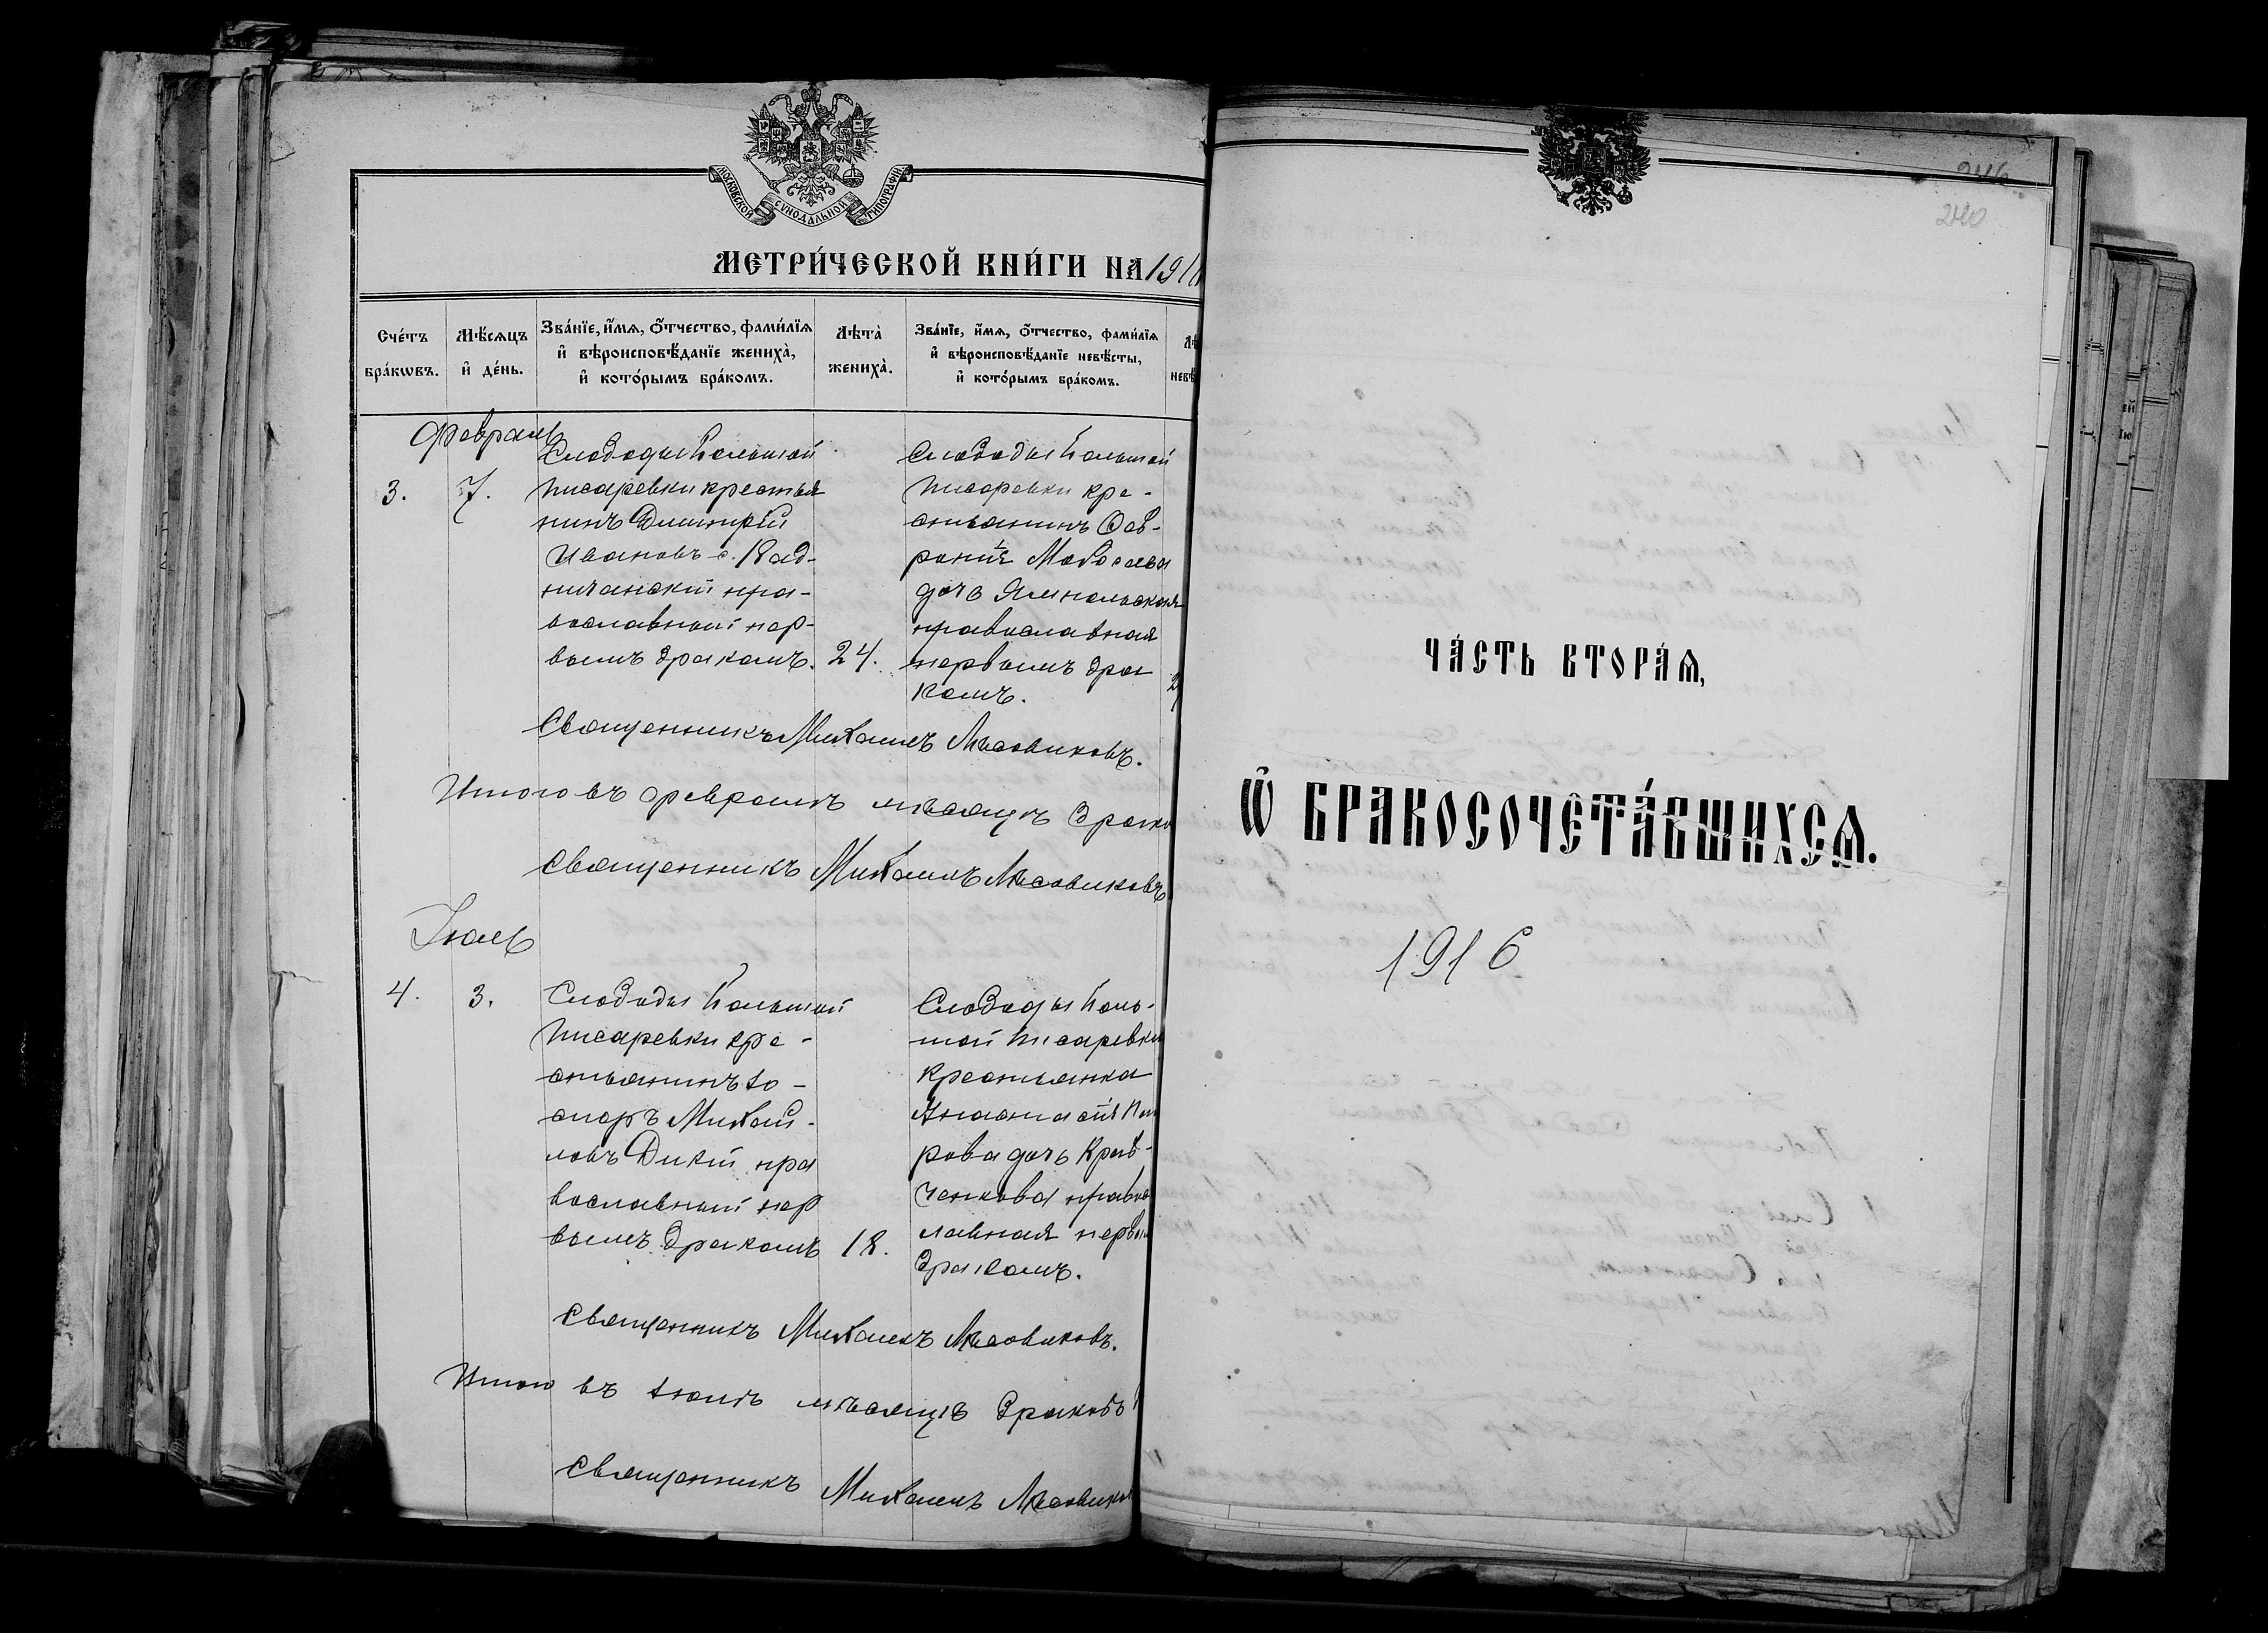 МОСКОВСКОЙ СѴНОДАЛЬНОЙ ТИПОГРАФІИ
МЕТРИ́ЧЕСКОЙ КНИ́ГИ НА 191
Сче́тъ бра́кѡвъ.
Мѣ́сѧцъ и҆ де́нь.
Зва́нїе, и҆́мѧ, ѻ҆́тчество, фами́лїѧ
и҆ вѣроисповѣ́данїе жениха̀,
и҆ кото́рымъ бра́комъ.
Лѣта̀ жениха̀.
Зва́нїе, и҆́мѧ, ѻ҆́тчество, фами́лїѧ
и҆ вѣроисповѣ́данїе невѣ́сты,
и҆ кото́рымъ бра́комъ.
Февраль
3. 7.
Слободы Большой
Писаревки крестья
нинъ Димитрій
Ивановъ с.
ничанскій пра-
вославный пер-
вымъ бракомъ. 24.
Слободы Большой
Писаревки кре-
стьянинъ Фев-
ронія Мовсеева
дочь Ямпольская
православная
первымъ бра
комъ.
Священникъ Михаилъ Лѣсовиковъ.
Итого въ февралѣ мѣсяцѣ брако
Священникъ Михаилъ Лѣсовиковъ
Іюль
4. 3.
Слободы Большой
Писаревки кре-
стьянинъ Іо-
сифъ Михай-
ловъ Дикій пра
вославный пер
вымъ бракомъ 18.
Слободы Боль-
шой Писаревки
крестьянка
Анастасія Пет
рова дочь Крав-
ченкова правос
лавная первым
бракомъ.
Священникъ Михаилъ Лѣсовиковъ.
Итого въ Іюлѣ мѣсяцѣ браковъ 1
Священникъ Михаилъ Лѣсовиков
246
240
ЧА́СТЬ ВТОРА́Ѧ,
Ѡ҆ БРАКОСОЧЕТА́ВШИХСѦ.
1916